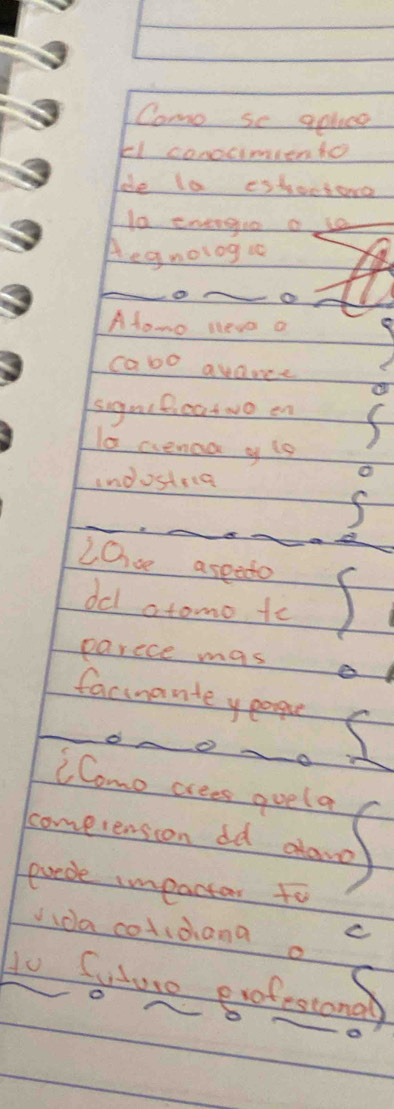 Como se aplica
el conocimiento
de la estructura
la energia o la
tegnologia
Atomo lleva a
cabo avance
significativo en
la ciencia y la
industria
¿Que aspecto
del atomo te
parece mas
facinante y porque
¿Como crees que la
comprension del atomo
puede impactar tu
vida cotidiana o
tu futuro profesional